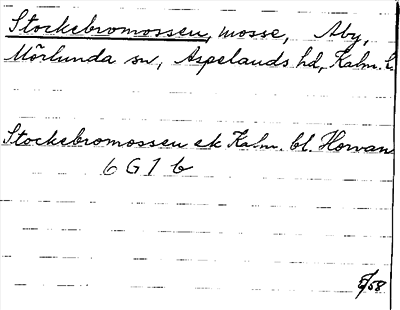 Stockebromossen, mosse, Åby,
Mörlunda sn, Aspelands hd, Kalm. l.
Stockebromossen ek Kalm. bl. Horvan
6 G 1 b
/58